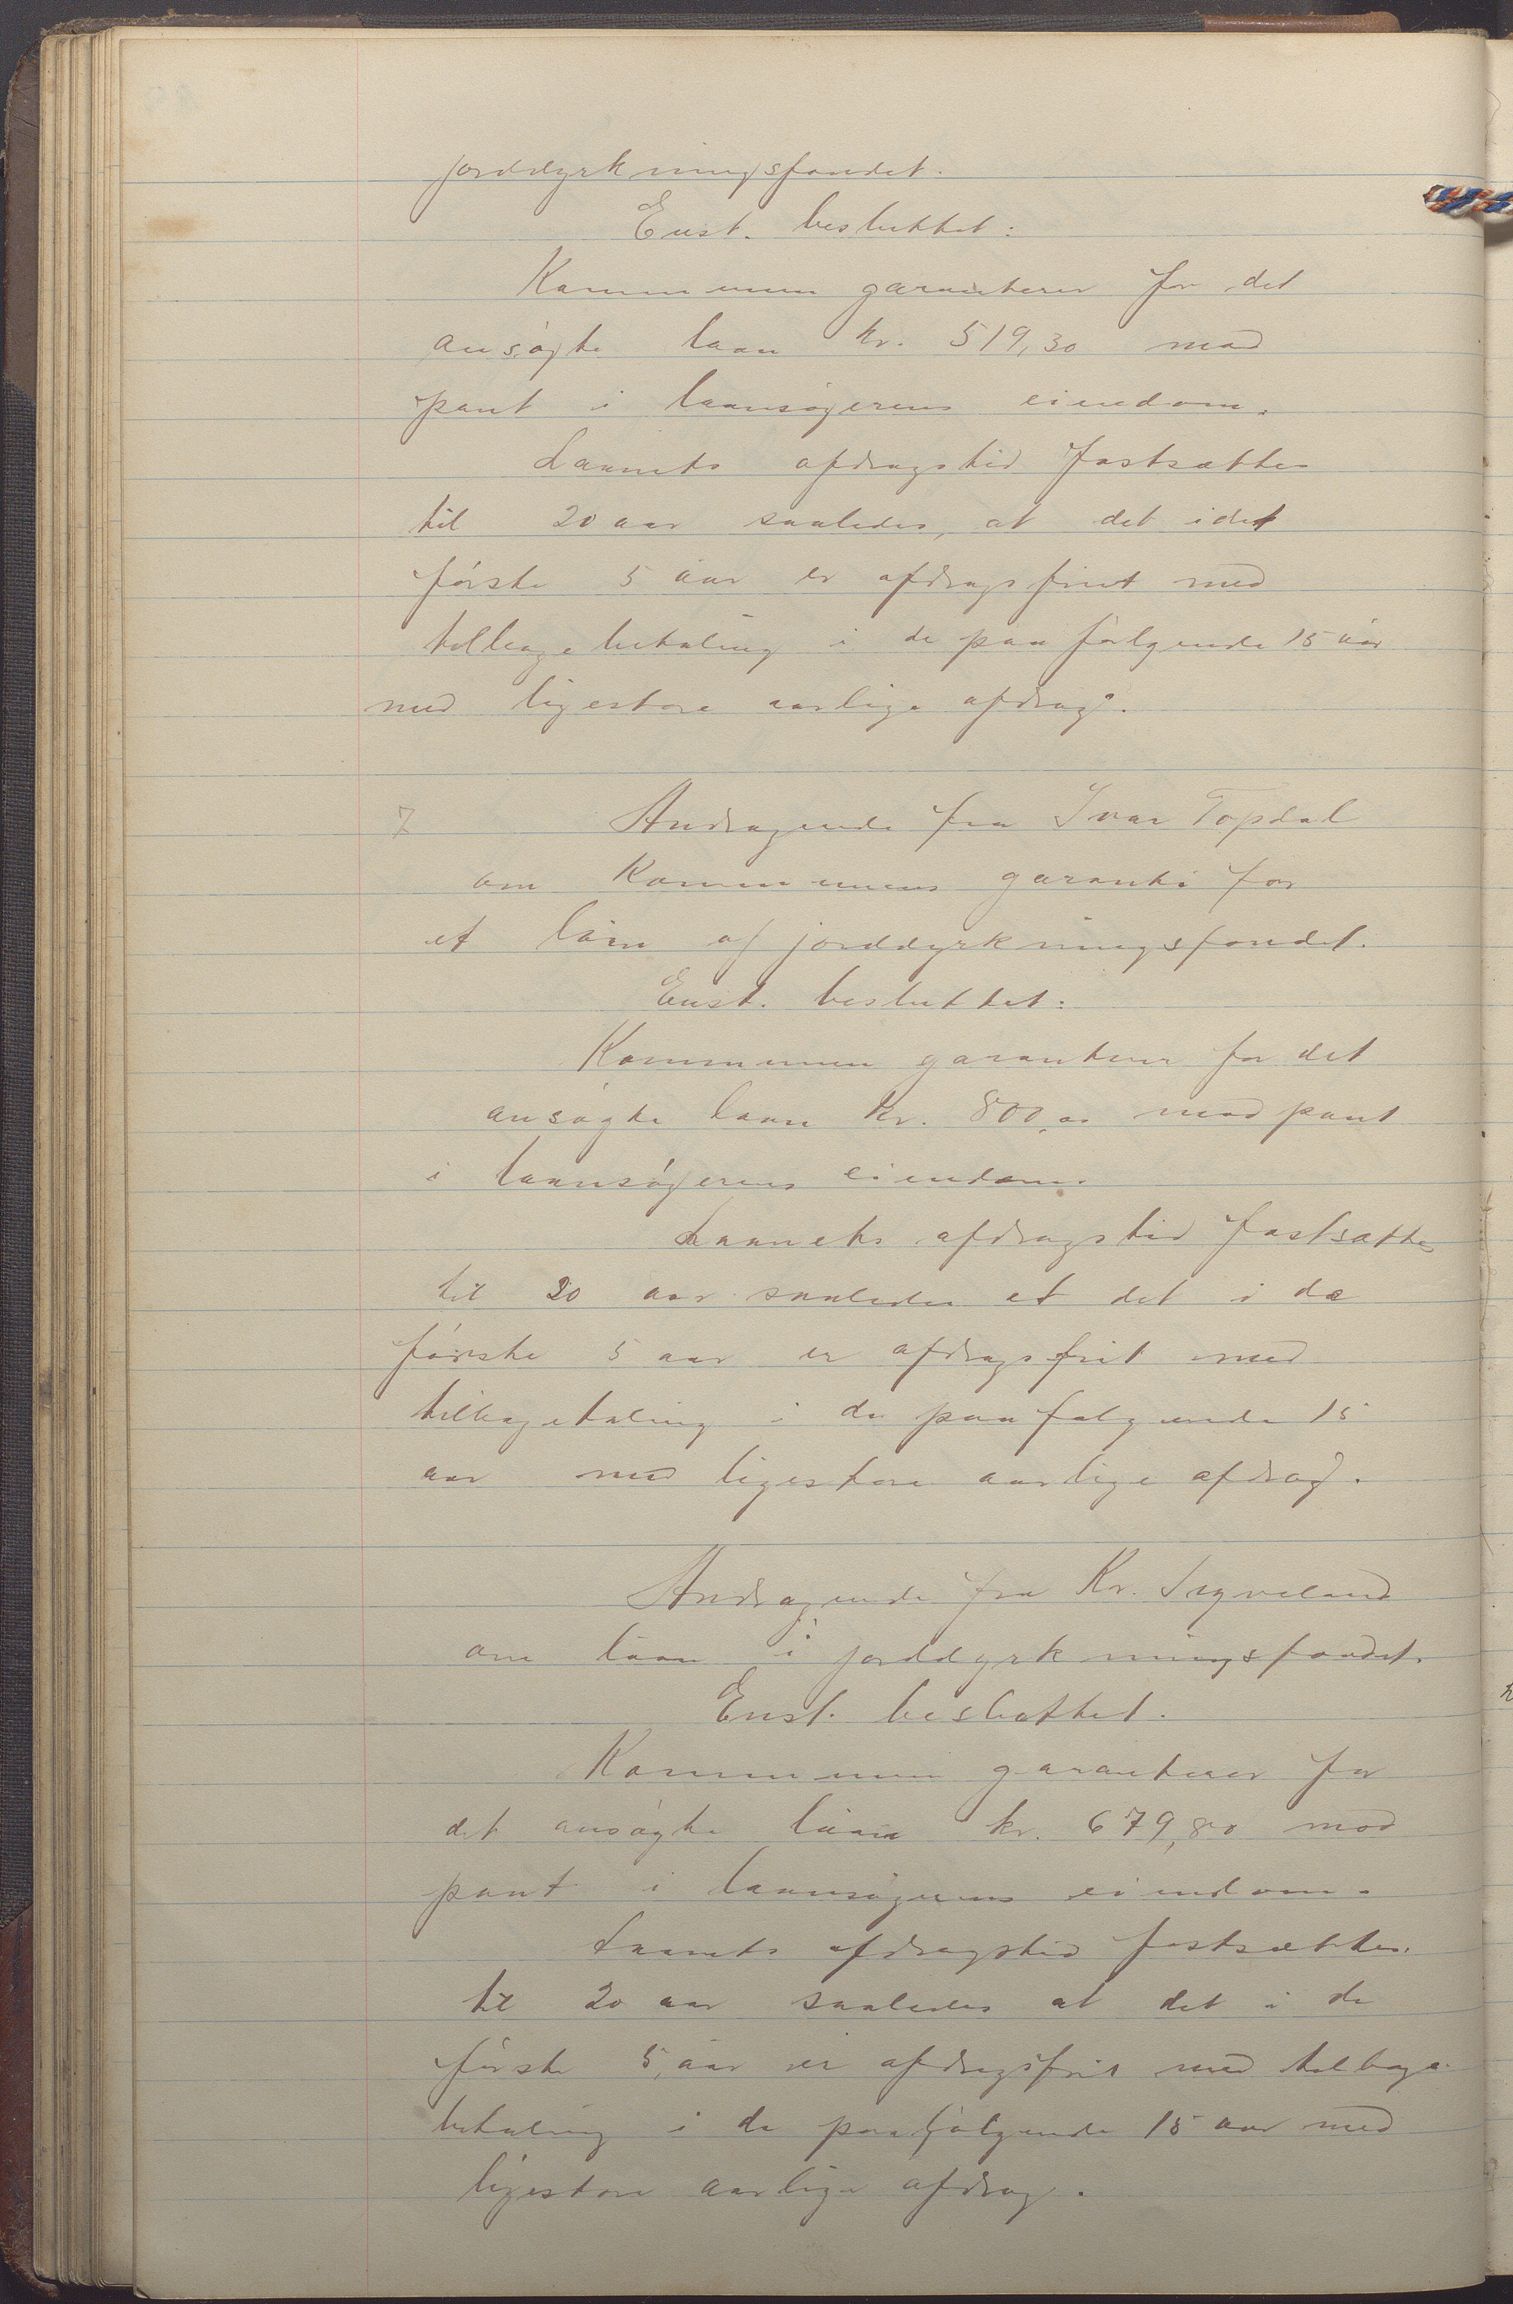 jorddyrkningsfondet.
Enst. besluttet:
Kommunen garanterer for det
ansøgte laan kr. 519,30 mod
pant i laansøgerens eiendom.
Laanets afdragstid fastsættes
til 20 aar saaledes, at det i det
første 5 aar er afdragsfriet med
tilbagebetaling i de paa følgende 15 aar
med ligestore aarlige afdrag.
7 Andragende fra Ivar Topdal
om Kommunens garanti for
et laan af jorddyrkningsfondet.
Enst. besluttet:
Kommunen garanterer for det
ansøgte laan kr. 800,00 mod pant
i laansøgerens eiendom.
Laanets afdragstid fastsættes
til 20 aar saaledes at det i de
første 5 aar er afdragsfrit med
tilbagetaling i de paafølgende 15
aar med ligestore aarlige afdrag.
Andragende fra Kr. Sigveland
om laan i jorddyrkningsfondet.
Enst. besluttet.
Kommunen garanterer for
det ansøgte laan kr. 679,80 mod
pant i laansøgerens eiendom.
Laanets afdragstid fastsættes
til 20 aar saaledes at det i de
første 5 aar er afdragsfrit med tilbage
betaling i de paafølgende 15 aar med
ligestore aarlige afdrag.